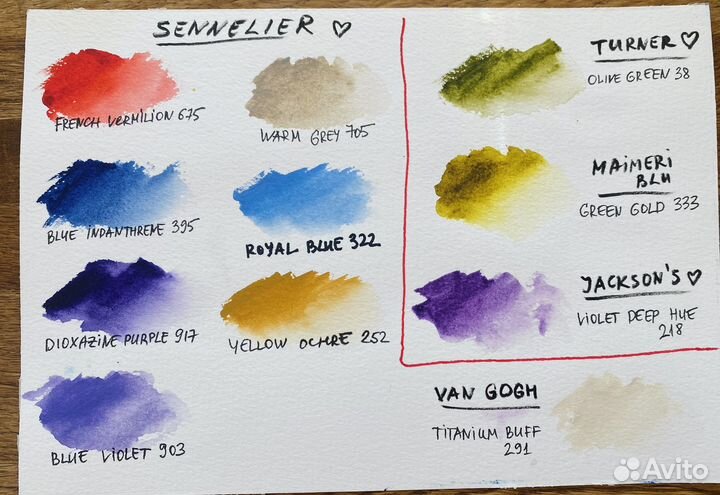 SENNELIER
FRENCH VERMILION 675
WARM GREY 705
BLUE INDANTHREME 395
ROYAL BLUE 322
DIOXAZINE PURPLE 917
YELLOW OCHRE 252
BLUE VIOLET 903
TURNER
OLIVE GREEN 38
MAIMERI
BLU
GREEN GOLD 333
JACKSON'S
VIOLET DEEP HUE
218
VAN GOGH
TITANIUM BUFF
291
Avito